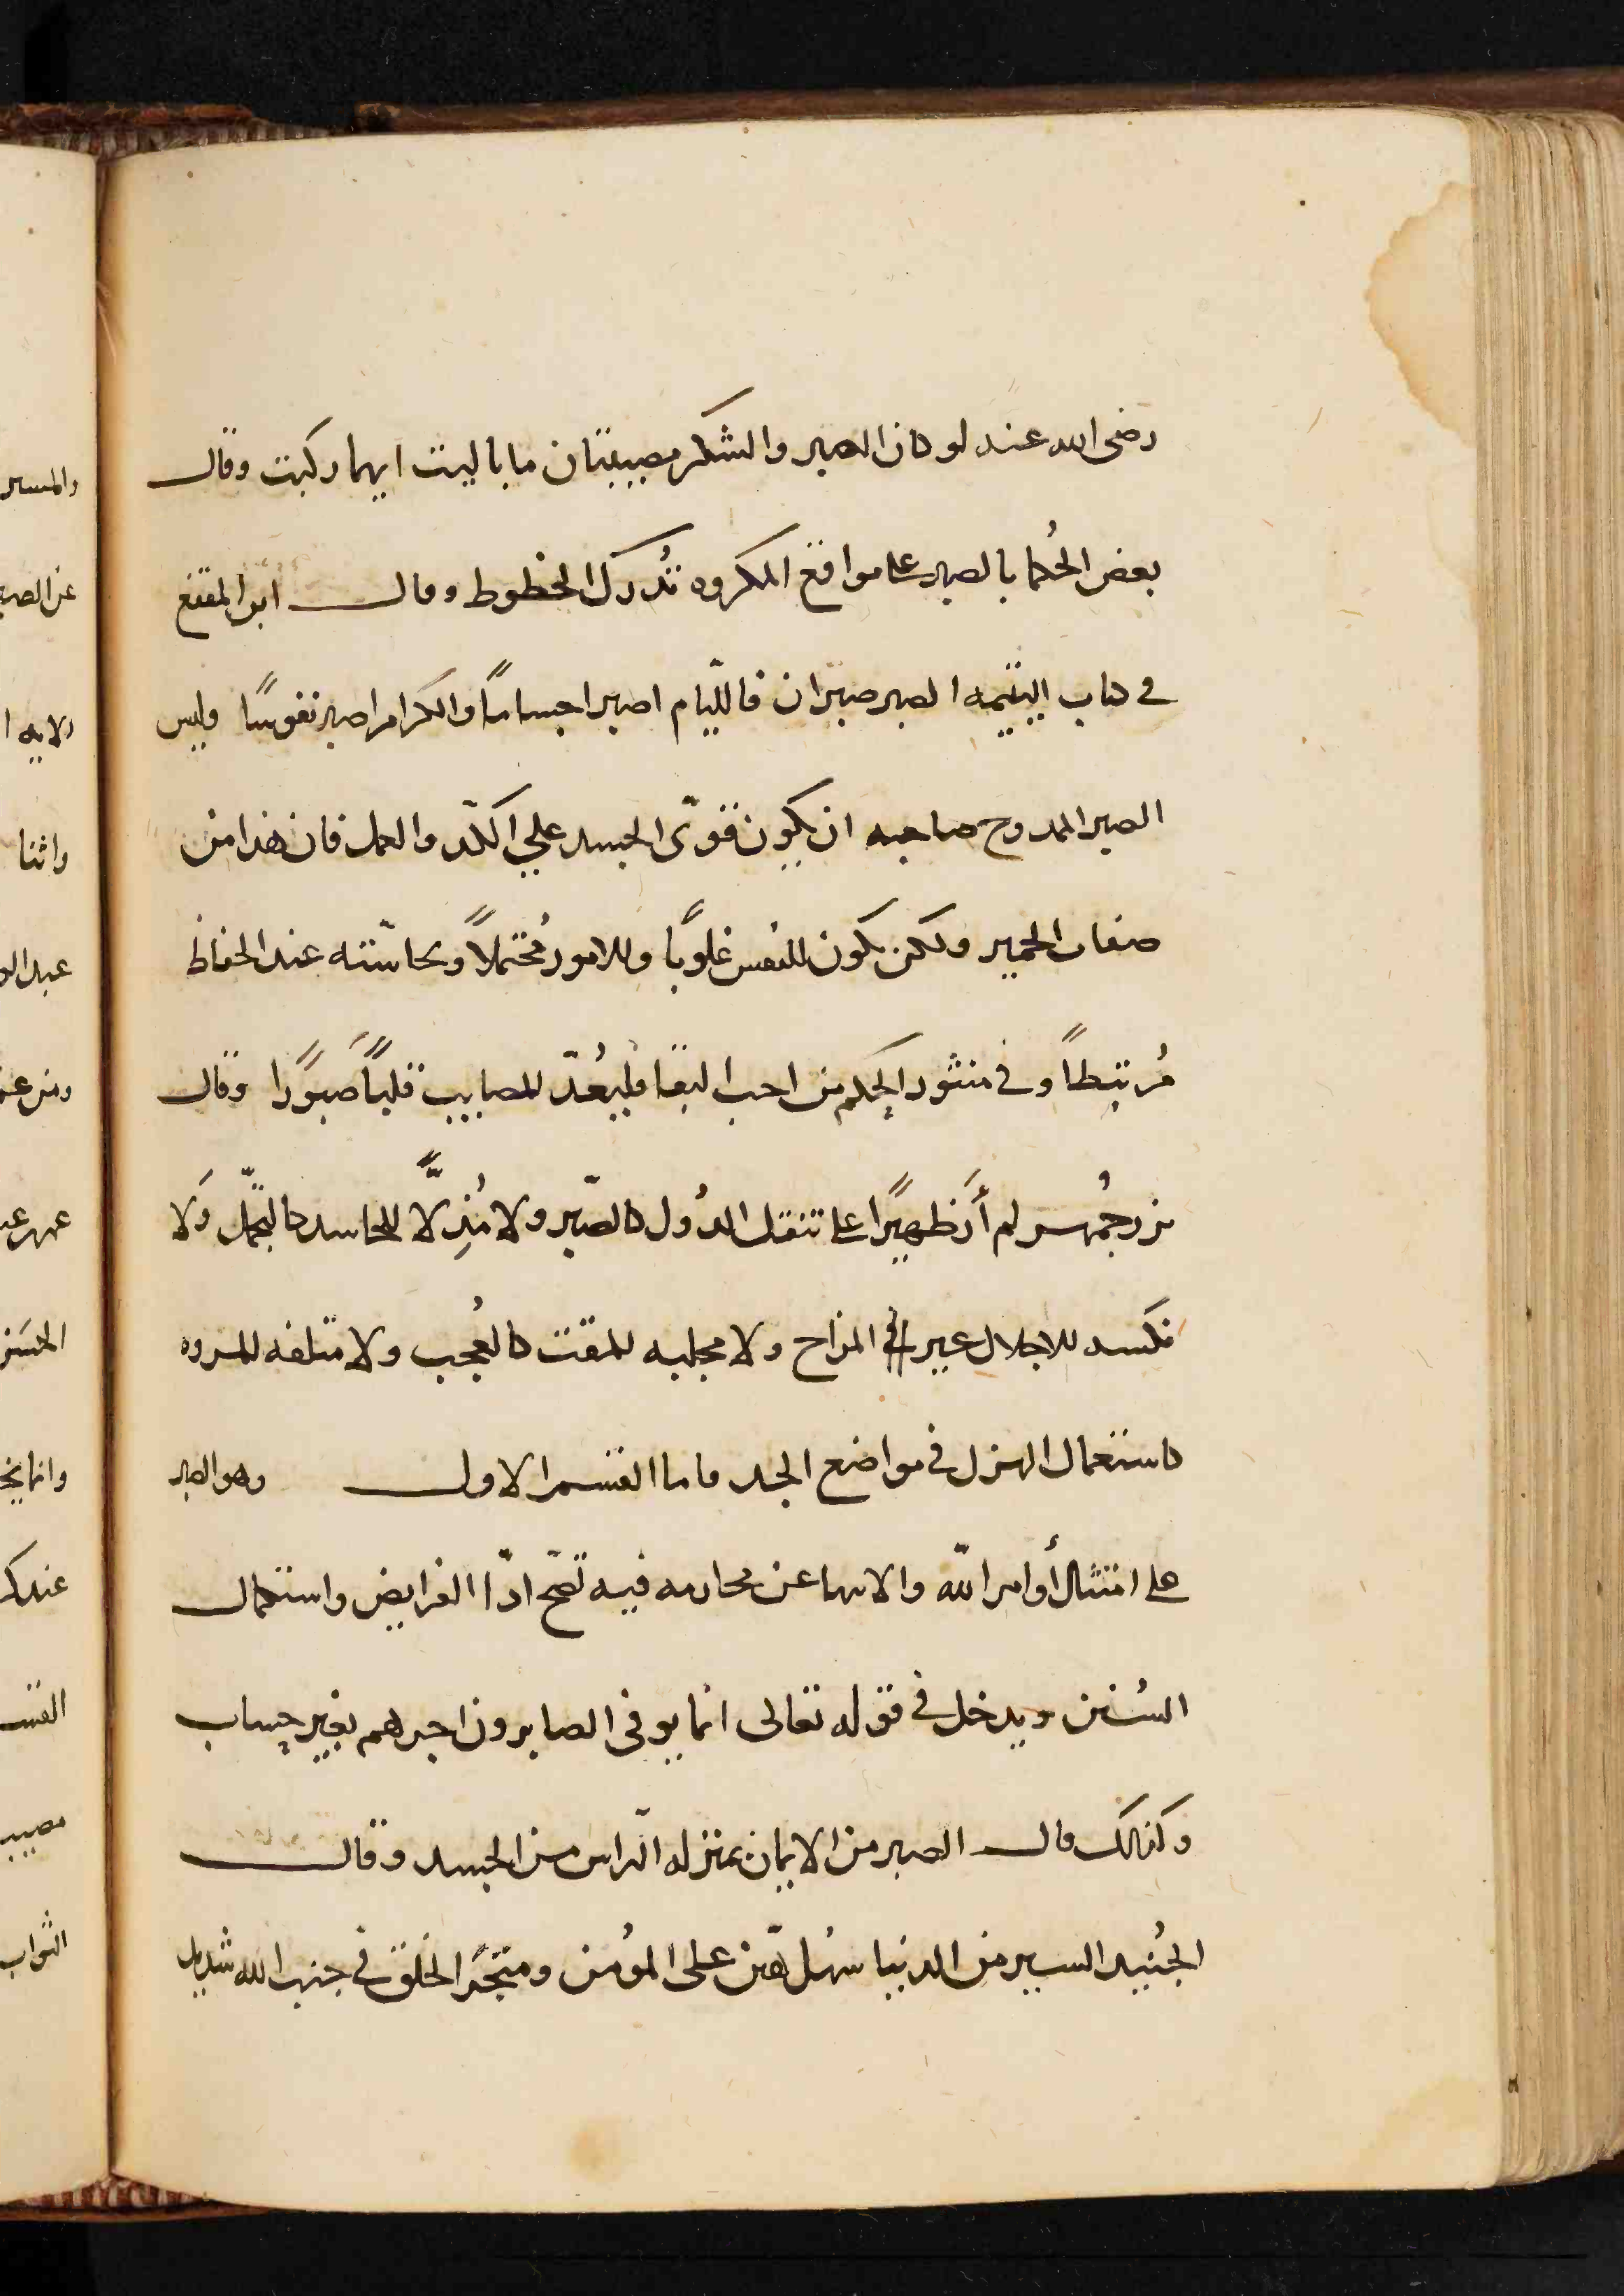 رضى الله عنه لو كان الصبر والشكر مصيبتان ما باليت ايهما ركبت وقال
بعض الحُكما بالصبر على مواقع المكروه تُدرك الحظوط وقال ابن المقفع
فى كتاب اليتيمه الصبر صبران فاللّيام اصبر اجساماً والكرام اصبر نفوسًا وليس
الصبر الممدوح صاحبه ان يكون قوىّ الجسد علي الكدّ والعمل فان هذا من
صفات الحمير ولكن يكون للنفس غلوبًا وللامور مُحتملاً وبحاسّته عند الحفاظ
مُرتبطاً وفى منثور الحِكم من احب البقا فليُعدّ للمصايب قلباً صَبورًا وقال
بزرجُمهر لم أَرَ ظهيرًا على تنقل الدُول كالصّبر ولا مُذِلاًّ للحاسد كالتجمّل وَلا
مكسبه للاجلال غير المزاح ولا مجلبه للمقت كالعُجب ولا متلفه للمروه
كاستعمال الهزل فى مواضع الجد فاما القسم الاول وهو الصبر
على امتثال أوامر اللّه والانتها عن محارمه فبه تصحّ ادّا الفرايض واستكمال
السُنن ويدخل فى قوله تعالى انما يوفى الصابرون اجرهم بغير حِساب
وكذلك قال الصبر من الايمان بمنزله الّراس من الجسد وقال
الجُنيد السير من الدنيا سهُل هّين على المؤُمن وهجر الخلق في جنب الله شديد
والمسير
عن الصبر
ولا يه ا
واثنا
عبد الو
ومن عند
عمر عبد
الحسَن
وانما يخ
عندك
القسم
مصيب
الثواب